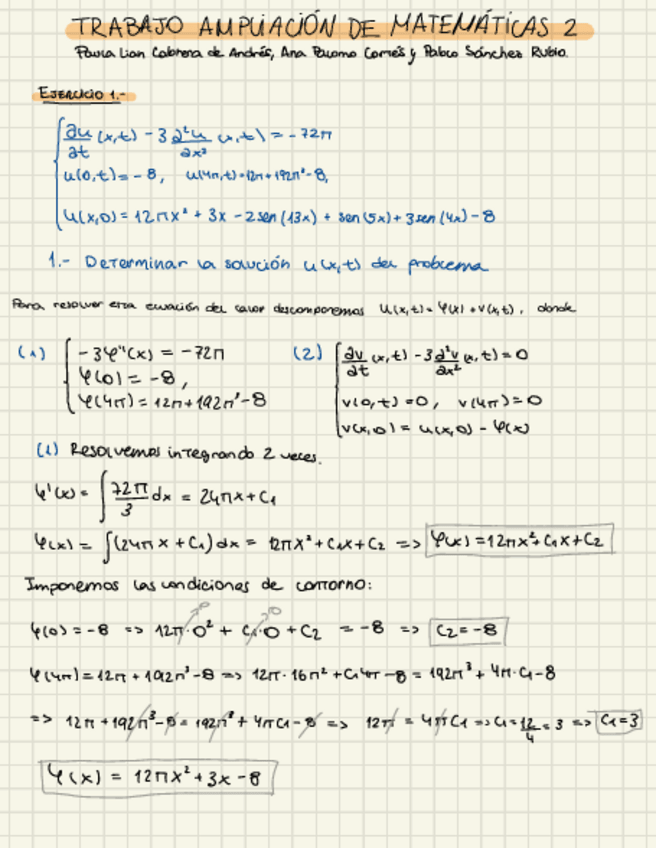 TRABAJO AMPLIACIÓN DE MATEMÁTICAS 2
Paula Lian Cabrera de Andrés, Ana Palomo Cortés y Pablo Sánchez Rubio.
EJERCICIO 1.-
∂u/∂t (x,t) - 3 ∂²u/∂x² (x,t) = -72π
u(0,t) = -8, u(4π,t) = 12π + 192π³ - 8,
u(x,0) = 12πx² + 3x - 2sen(13x) + sen(5x) + 3sen(4x) - 8
1.- Determinar la solución u(x,t) del problema
Para resolver esta ecuación del calor descomponemos u(x,t) = φ(x) + v(x,t), donde
(1) -3φ''(x) = -72π (2) ∂v/∂t (x,t) - 3 ∂²v/∂x² (x,t) = 0
φ(0) = -8, v(0,t) = 0, v(4π) = 0
φ(4π) = 12π + 192π³ - 8 v(x,0) = u(x,0) - φ(x)
(1) Resolvemos integrando 2 veces.
φ'(x) = ∫ 72π/3 dx = 24πx + C1
φ(x) = ∫(24πx + C1) dx = 12πx² + C1x + C2 => φ(x) = 12πx² + C1x + C2
Imponemos las condiciones de contorno:
φ(0) = -8 => 12π·0² + C1·0 + C2 = -8 => C2 = -8
φ(4π) = 12π + 192π³ - 8 => 12π·16π² + C1 4π - 8 = 192π³ + 4π·C1 - 8
=> 12π + 192π³ - 8 = 192π³ + 4πC1 - 8 => 12π = 4πC1 => C1 = 12/4 = 3 => C1 = 3
φ(x) = 12πx² + 3x - 8